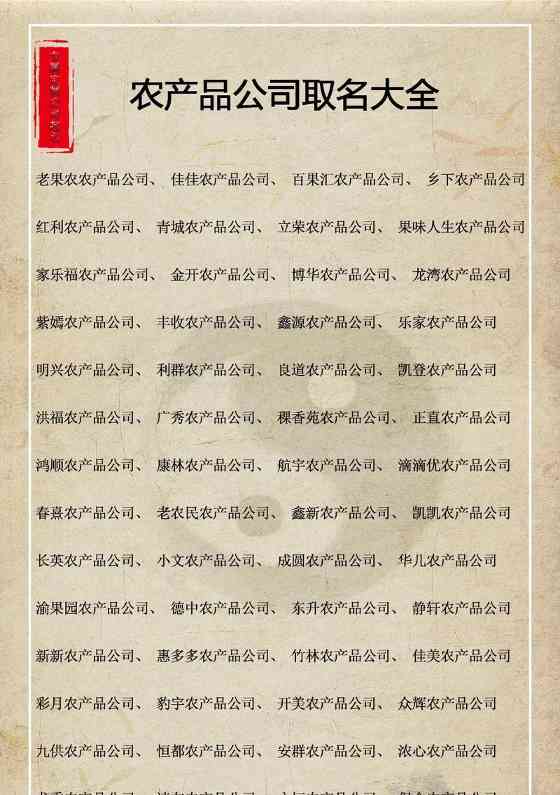 农产品公司取名大全
老果农农产品公司、 佳佳农产品公司、 百果汇农产品公司、 乡下农产品公司
红利农产品公司、 青城农产品公司、 立荣农产品公司、 果味人生农产品公司
家乐福农产品公司、 金开农产品公司、 博华农产品公司、 龙湾农产品公司
紫嫣农产品公司、 丰收农产品公司、 鑫源农产品公司、 乐家农产品公司
明兴农产品公司、 利群农产品公司、 良道农产品公司、 凯登农产品公司
洪福农产品公司、 广秀农产品公司、 稞香苑农产品公司、 正直农产品公司
鸿顺农产品公司、 康林农产品公司、 航宇农产品公司、 滴滴优农产品公司
春熹农产品公司、 老农民农产品公司、 鑫新农产品公司、 凯凯农产品公司
长英农产品公司、 小文农产品公司、 成圆农产品公司、 华儿农产品公司
渝果园农产品公司、 德中农产品公司、 东升农产品公司、 静轩农产品公司
新新农产品公司、 惠多多农产品公司、 竹林农产品公司、 佳美农产品公司
彩月农产品公司、 豹字农产品公司、 开美农产品公司、 众辉农产品公司
九供农产品公司、 恒都农产品公司、 安群农产品公司、 浓心农产品公司